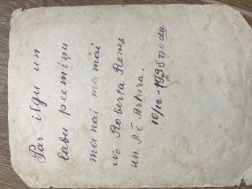 Par ilgu un
labu piemiņu
manai mamai
no Roberta Roms
un
10/IV-1938 goda